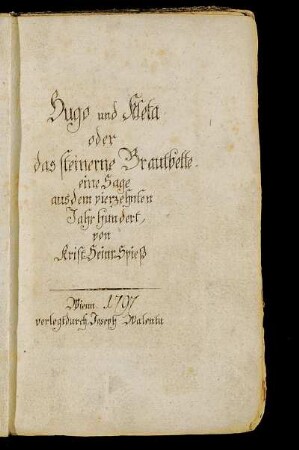 Hugo und Kleta
oder
das steinerne Brautbette.
eine Sage
aus dem vierzehnten
Jahrhundert,
von
Krist. Heinr. Spieß
Wienn. 1797
verlegt durch Joseph Walentu